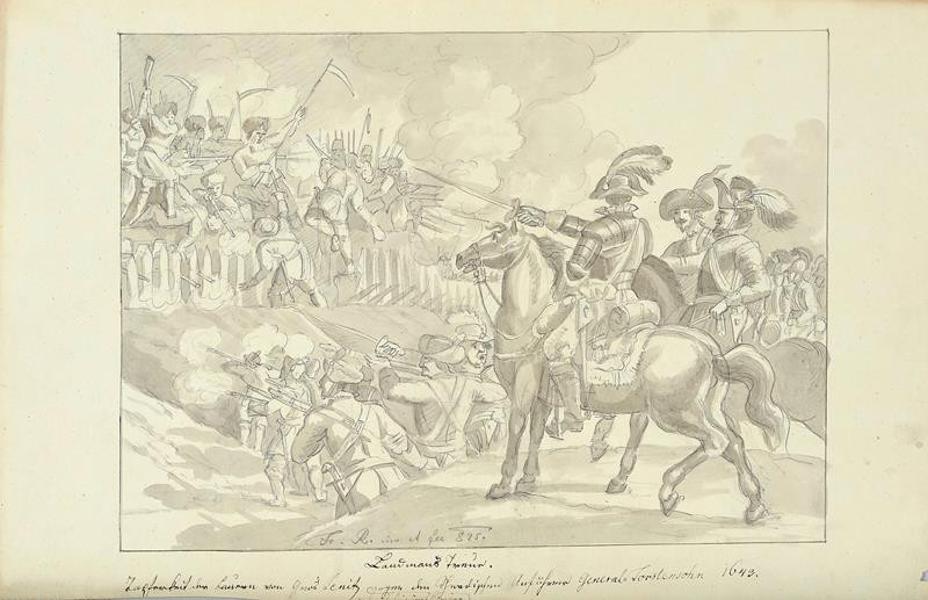 Fr. R. inv et fec 825.
Landmanns Treue.
Tapferkeit der Bauern von Gros Senitz gegen den Schwedischen Anführer General Torstensohn 1643.